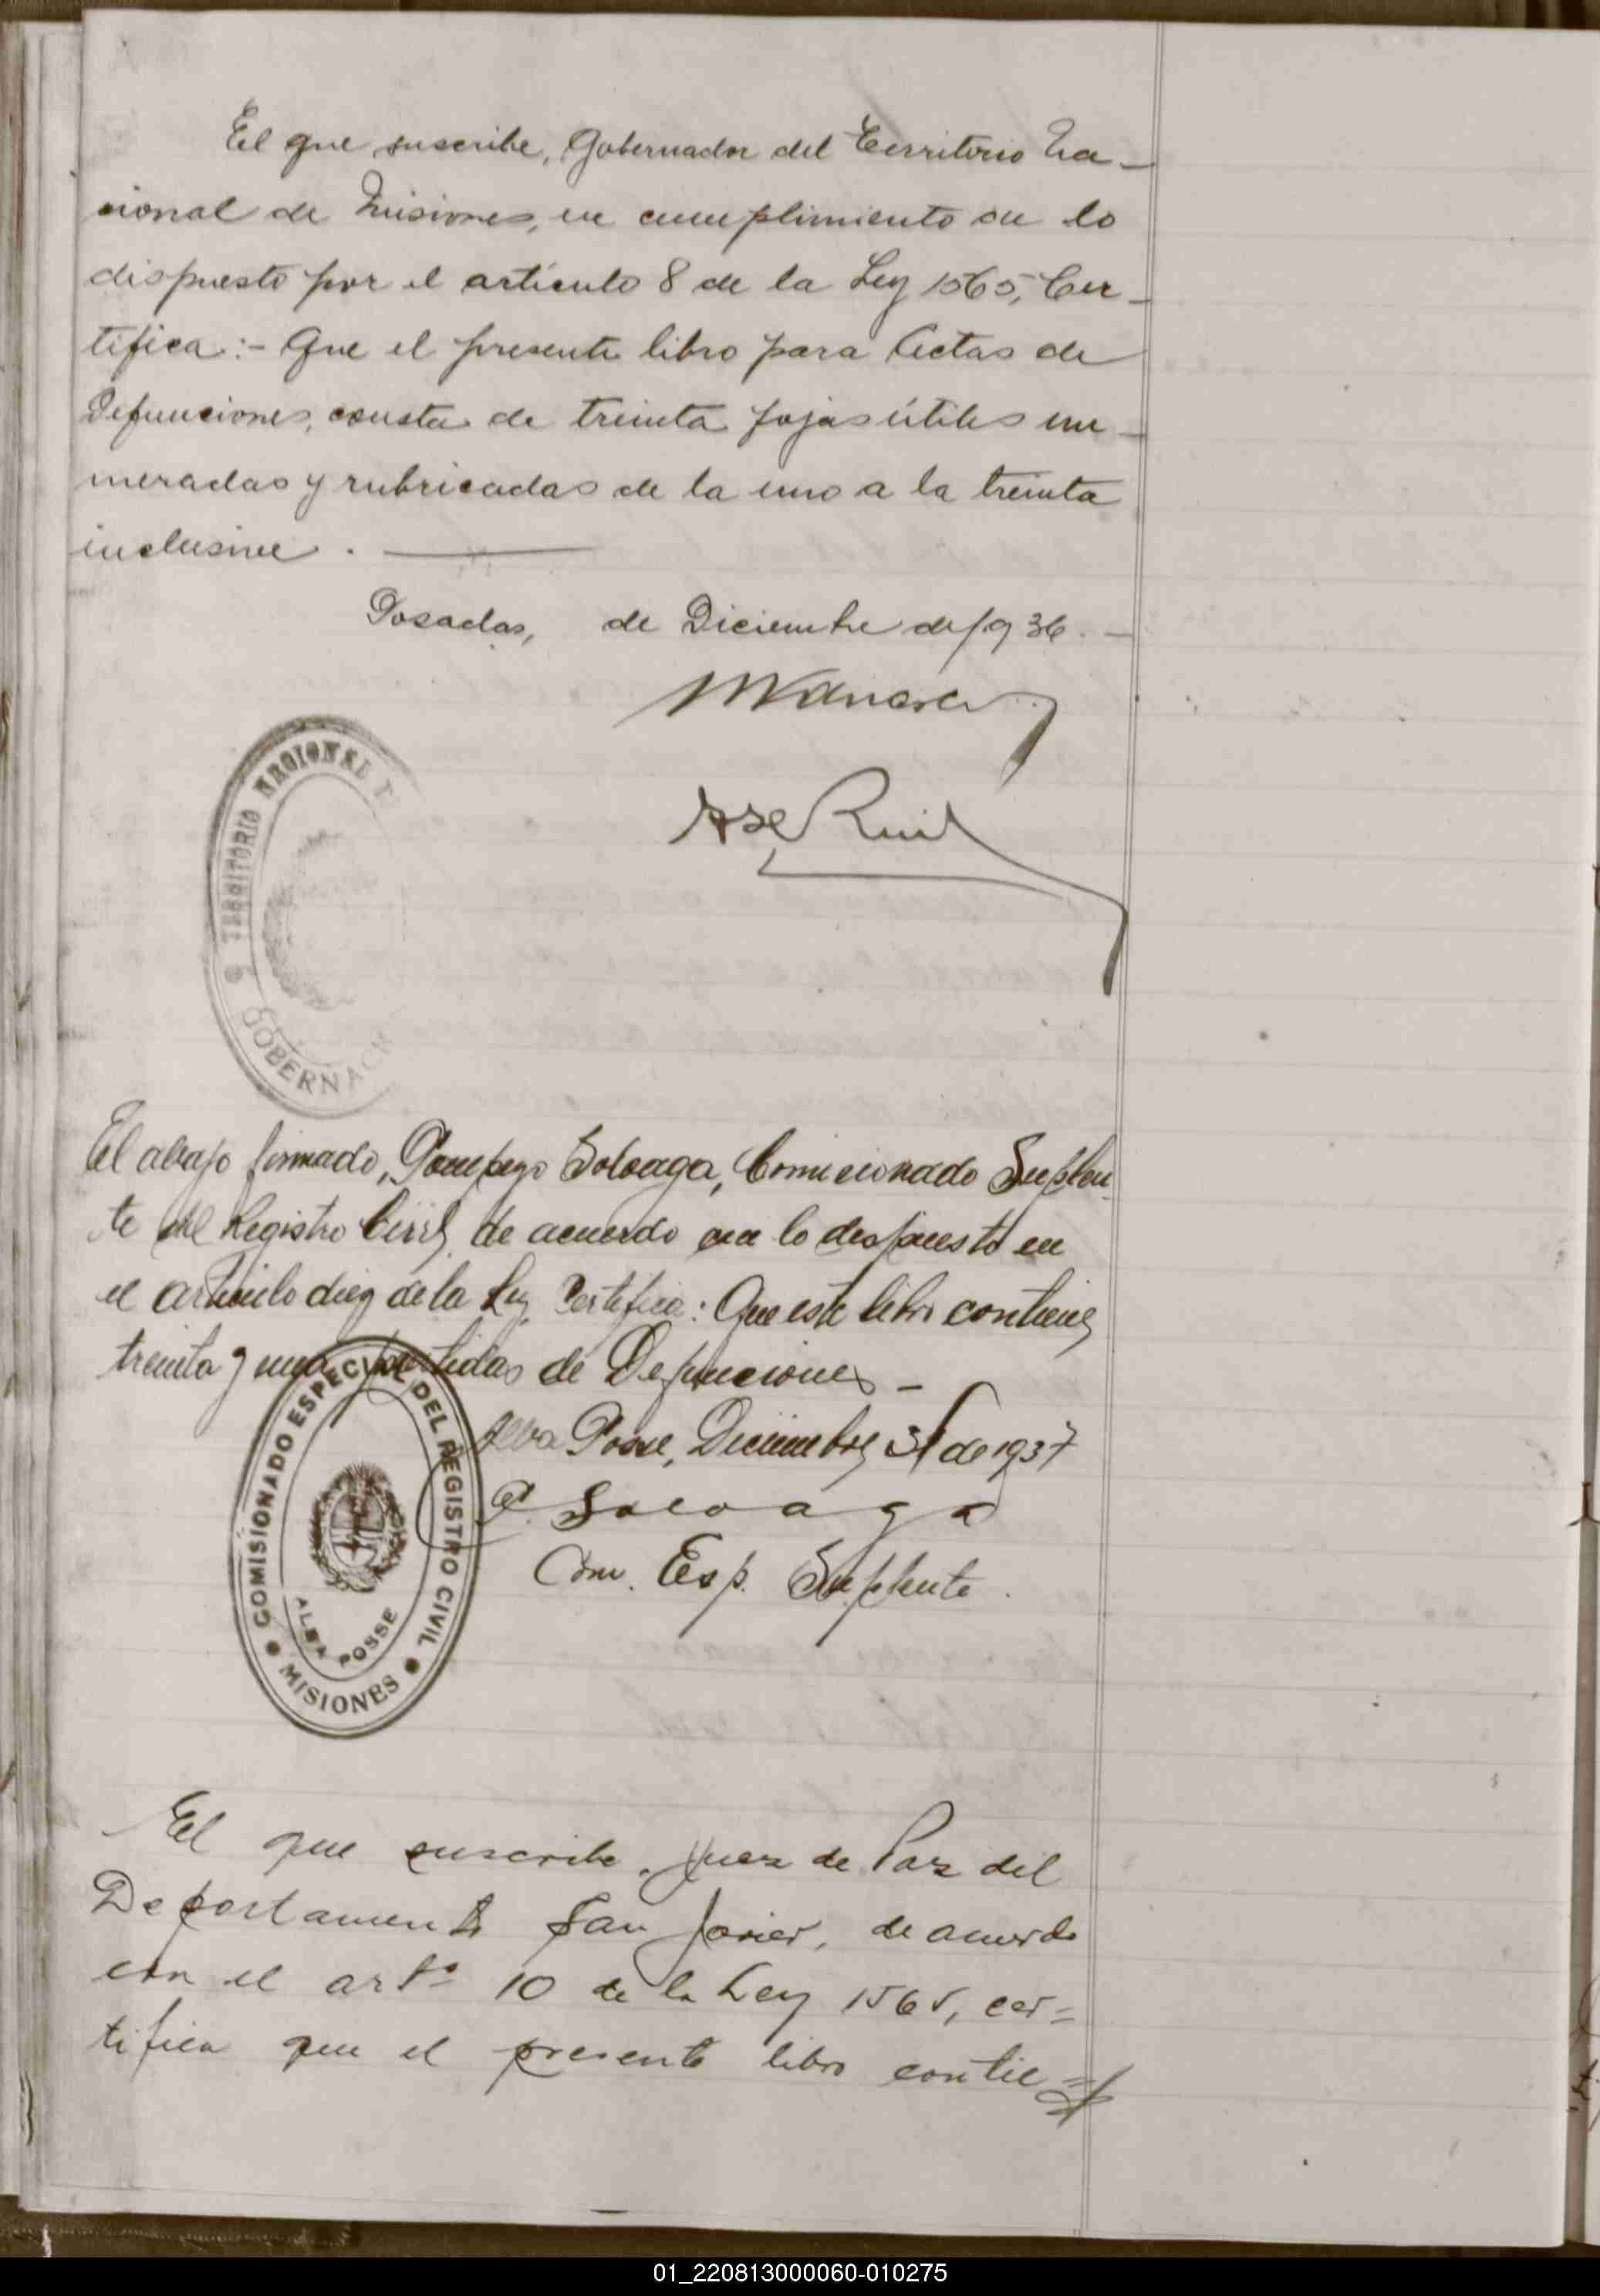 El que suscribe, Gobernador del Territorio Na-
cional de Misiones, en cumplimiento de lo
dispuesto por el artículo 8 de la Ley 1565, Cer-
tifica:- Que el presente libro para Actas de
Defunciones, consta de treinta fojas útiles nu-
meradas y rubricadas de la uno a la treinta
inclusive.
Posadas, de Diciembre de 1936.-
TERRITORIO NACIONAL
GOBERNAC
El abajo firmado, Pompeyo Soloaga, Comicionado Suplen-
te del Registro Civil, de acuerdo con lo dispuesto en
el artículo diez de la Ley, Certifica: Que este libro contiene
treinta y una partidas de Defunciones -
Alba Posse, Diciembre 31 de 1937
P. Soloaga
Com. Esp. Suplente.
COMISIONADO ESPECIAL DEL REGISTRO CIVIL
ALBA POSSE
MISIONES
El que suscribe, Juez de Paz del
Departamento San Javier, de acuerdo
con el artº 10 de la Ley 1565, cer=
tifica que el presente libro contie=
01_220813000060-010275